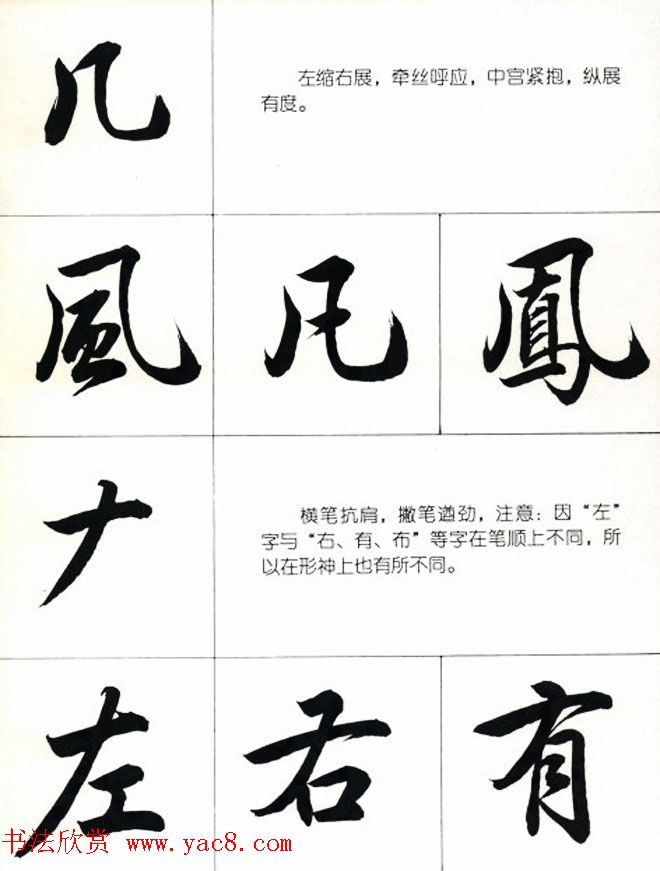 几
左缩右展，牵丝呼应，中宫紧抱，纵展
有度。
風 凡 鳳
𠂇
横笔抗肩，撇笔遒劲，注意：因“左”
字与“右、有、布”等字在笔顺上不同，所
以在形神上也有所不同。
左 右 有
书法欣赏 www.yac8.com